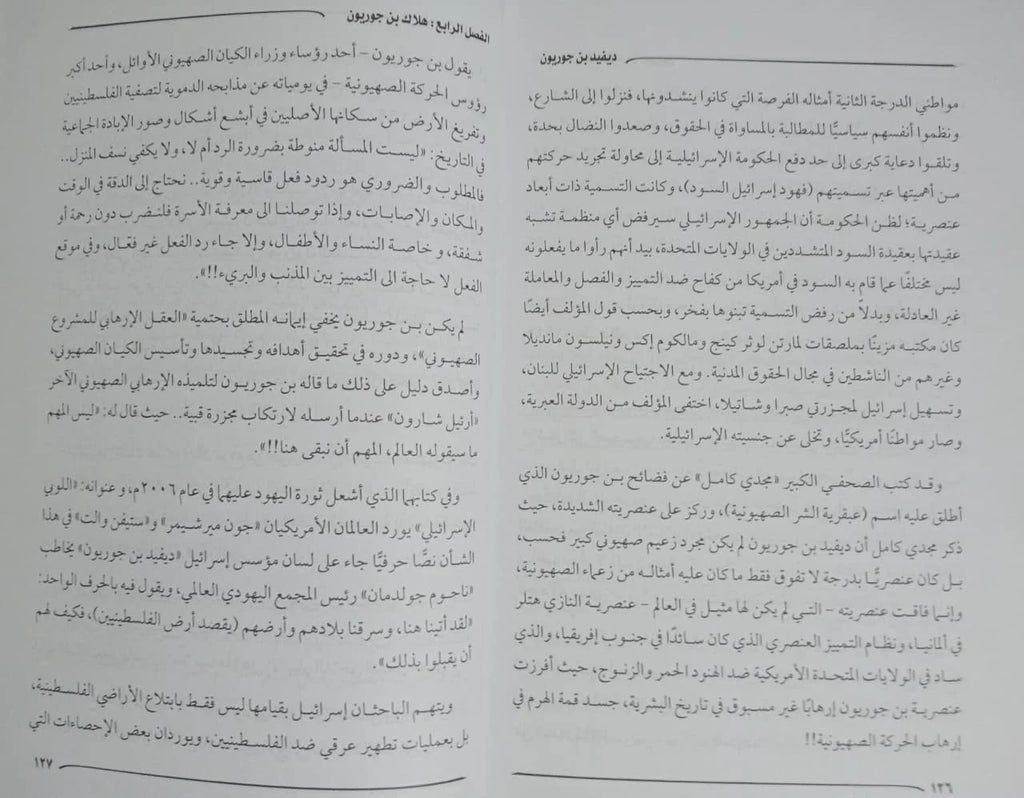 ديفيد بن جوريون
مواطني الدرجة الثانية أمثاله الفرصة التي كانوا ينشدونها، فنزلوا إلى الشارع،
ونظموا أنفسهم سياسيًّا للمطالبة بالمساواة في الحقوق، وصعدوا النضال بحدة،
وتلقوا دعاية كبرى إلى حد دفع الحكومة الإسرائيلية إلى محاولة تجريد حركتهم
من أهميتها عبر تسميتهم (فهود إسرائيل السود)، وكانت التسمية ذات أبعاد
عنصرية؛ لظن الحكومة أن الجمهور الإسرائيلي سيرفض أي منظمة تشبه
عقيدتها بعقيدة السود المتشددين في الولايات المتحدة، بيد أنهم رأوا ما يفعلونه
ليس مختلفًا عما قام به السود في أمريكا من كفاح ضد التمييز والفصل والمعاملة
غير العادلة، وبدلاً من رفض التسمية تبنوها بفخر، وبحسب قول المؤلف أيضًا
كان مكتبه مزينًا بملصقات لمارتن لوثر كينج ومالكوم إكس ونيلسون مانديلا
وغيرهم من الناشطين في مجال الحقوق المدنية. ومع الاجتياح الإسرائيلي للبنان،
وتسهيل إسرائيل لمجزرتي صبرا وشاتيلا، اختفى المؤلف من الدولة العبرية،
وصار مواطنًا أمريكيًّا، وتخلى عن جنسيته الإسرائيلية.
وقد كتب الصحفي الكبير «مجدي كامل» عن فضائح بن جوريون الذي
أطلق عليه اسم (عبقرية الشر الصهيونية)، وركز على عنصريته الشديدة، حيث
ذكر مجدي كامل أن ديفيد بن جوريون لم يكن مجرد زعيم صهيوني كبير فحسب،
بل كان عنصريًّا بدرجة لا تفوق فقط ما كان عليه أمثاله من زعماء الصهيونية،
وإنما فاقت عنصريته – التي لم يكن لها مثيل في العالم – عنصرية النازي هتلر
في ألمانيا، ونظام التمييز العنصري الذي كان سائدًا في جنوب إفريقيا، والذي
ساد في الولايات المتحدة الأمريكية ضد الهنود الحمر والزنوج، حيث أفرزت
عنصرية بن جوريون إرهابًا غير مسبوق في تاريخ البشرية، جسد قمة الهرم في
إرهاب الحركة الصهيونية!!
١٢٦
الفصل الرابع: هلاك بن جوريون
يقول بن جوريون – أحد رؤساء وزراء الكيان الصهيوني الأوائل، وأحد أكبر
رؤوس الحركة الصهيونية – في يومياته عن مذابحه الدموية لتصفية الفلسطينيين
وتفريغ الأرض من سكانها الأصليين في أبشع أشكال وصور الإبادة الجماعية
في التاريخ: «ليست المسألة منوطة بضرورة الرد أم لا، ولا يكفي نسف المنزل..
فالمطلوب والضروري هو ردود فعل قاسية وقوية.. نحتاج إلى الدقة في الوقت
والمكان والإصابات، وإذا توصلنا الى معرفة الأسرة فلنضرب دون رحمة أو
شفقة، وخاصة النساء والأطفال، وإلا جاء رد الفعل غير فعال، وفي موقع
الفعل لا حاجة الى التمييز بين المذنب والبريء!!».
لم يكن بن جوريون يخفي إيمانه المطلق بحتمية «العقل الإرهابي للمشروع
الصهيوني»، ودوره في تحقيق أهدافه وتجسيدها وتأسيس الكيان الصهيوني،
وأصدق دليل على ذلك ما قاله بن جوريون لتلميذه الإرهابي الصهيوني الآخر
«أرئيل شارون» عندما أرسله لارتكاب مجزرة قبية.. حيث قال له: «ليس المهم
ما سيقوله العالم، المهم أن نبقى هنا!!».
وفي كتابهما الذي أشعل ثورة اليهود عليهما في عام ٢٠٠٦م، وعنوانه: «اللوبي
الإسرائيلي» يورد العالمان الأمريكيان «جون ميرشيمر» و«ستيفن والت» في هذا
الشأن نصًّا حرفيًّا جاء على لسان مؤسس إسرائيل «ديفيد بن جوريون» يخاطب
«ناحوم جولدمان» رئيس المجمع اليهودي العالمي، ويقول فيه بالحرف الواحد:
«لقد أتينا هنا، وسرقنا بلادهم وأرضهم (يقصد أرض الفلسطينيين)، فكيف لهم
أن يقبلوا بذلك».
ويتهم الباحثان إسرائيل بقيامها ليس فقط بابتلاع الأراضي الفلسطينية،
بل بعمليات تطهير عرقي ضد الفلسطينيين، ويوردان بعض الإحصاءات التي
١٢٧